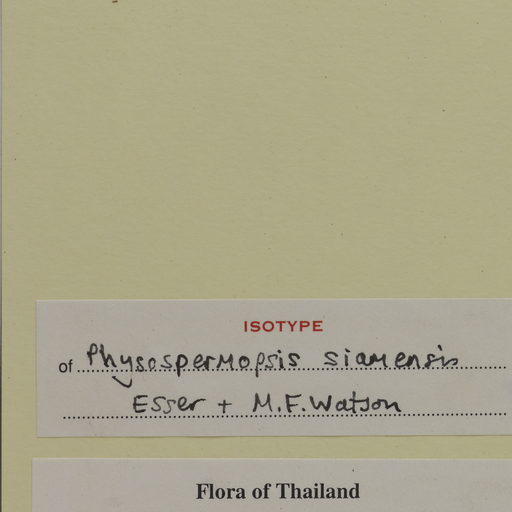 ISOTYPE
of Physospermopsis siamensis
Esser + M.F. Watson
Flora of Thailand